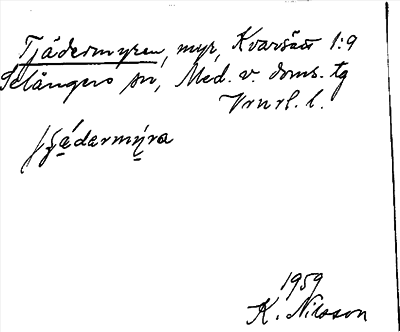 Tjädermyren, myr, Kvarsätt 1:9
Selångers sn, Med. v. doms. tg
Vrnrl. l.
1959
K. Nilsson